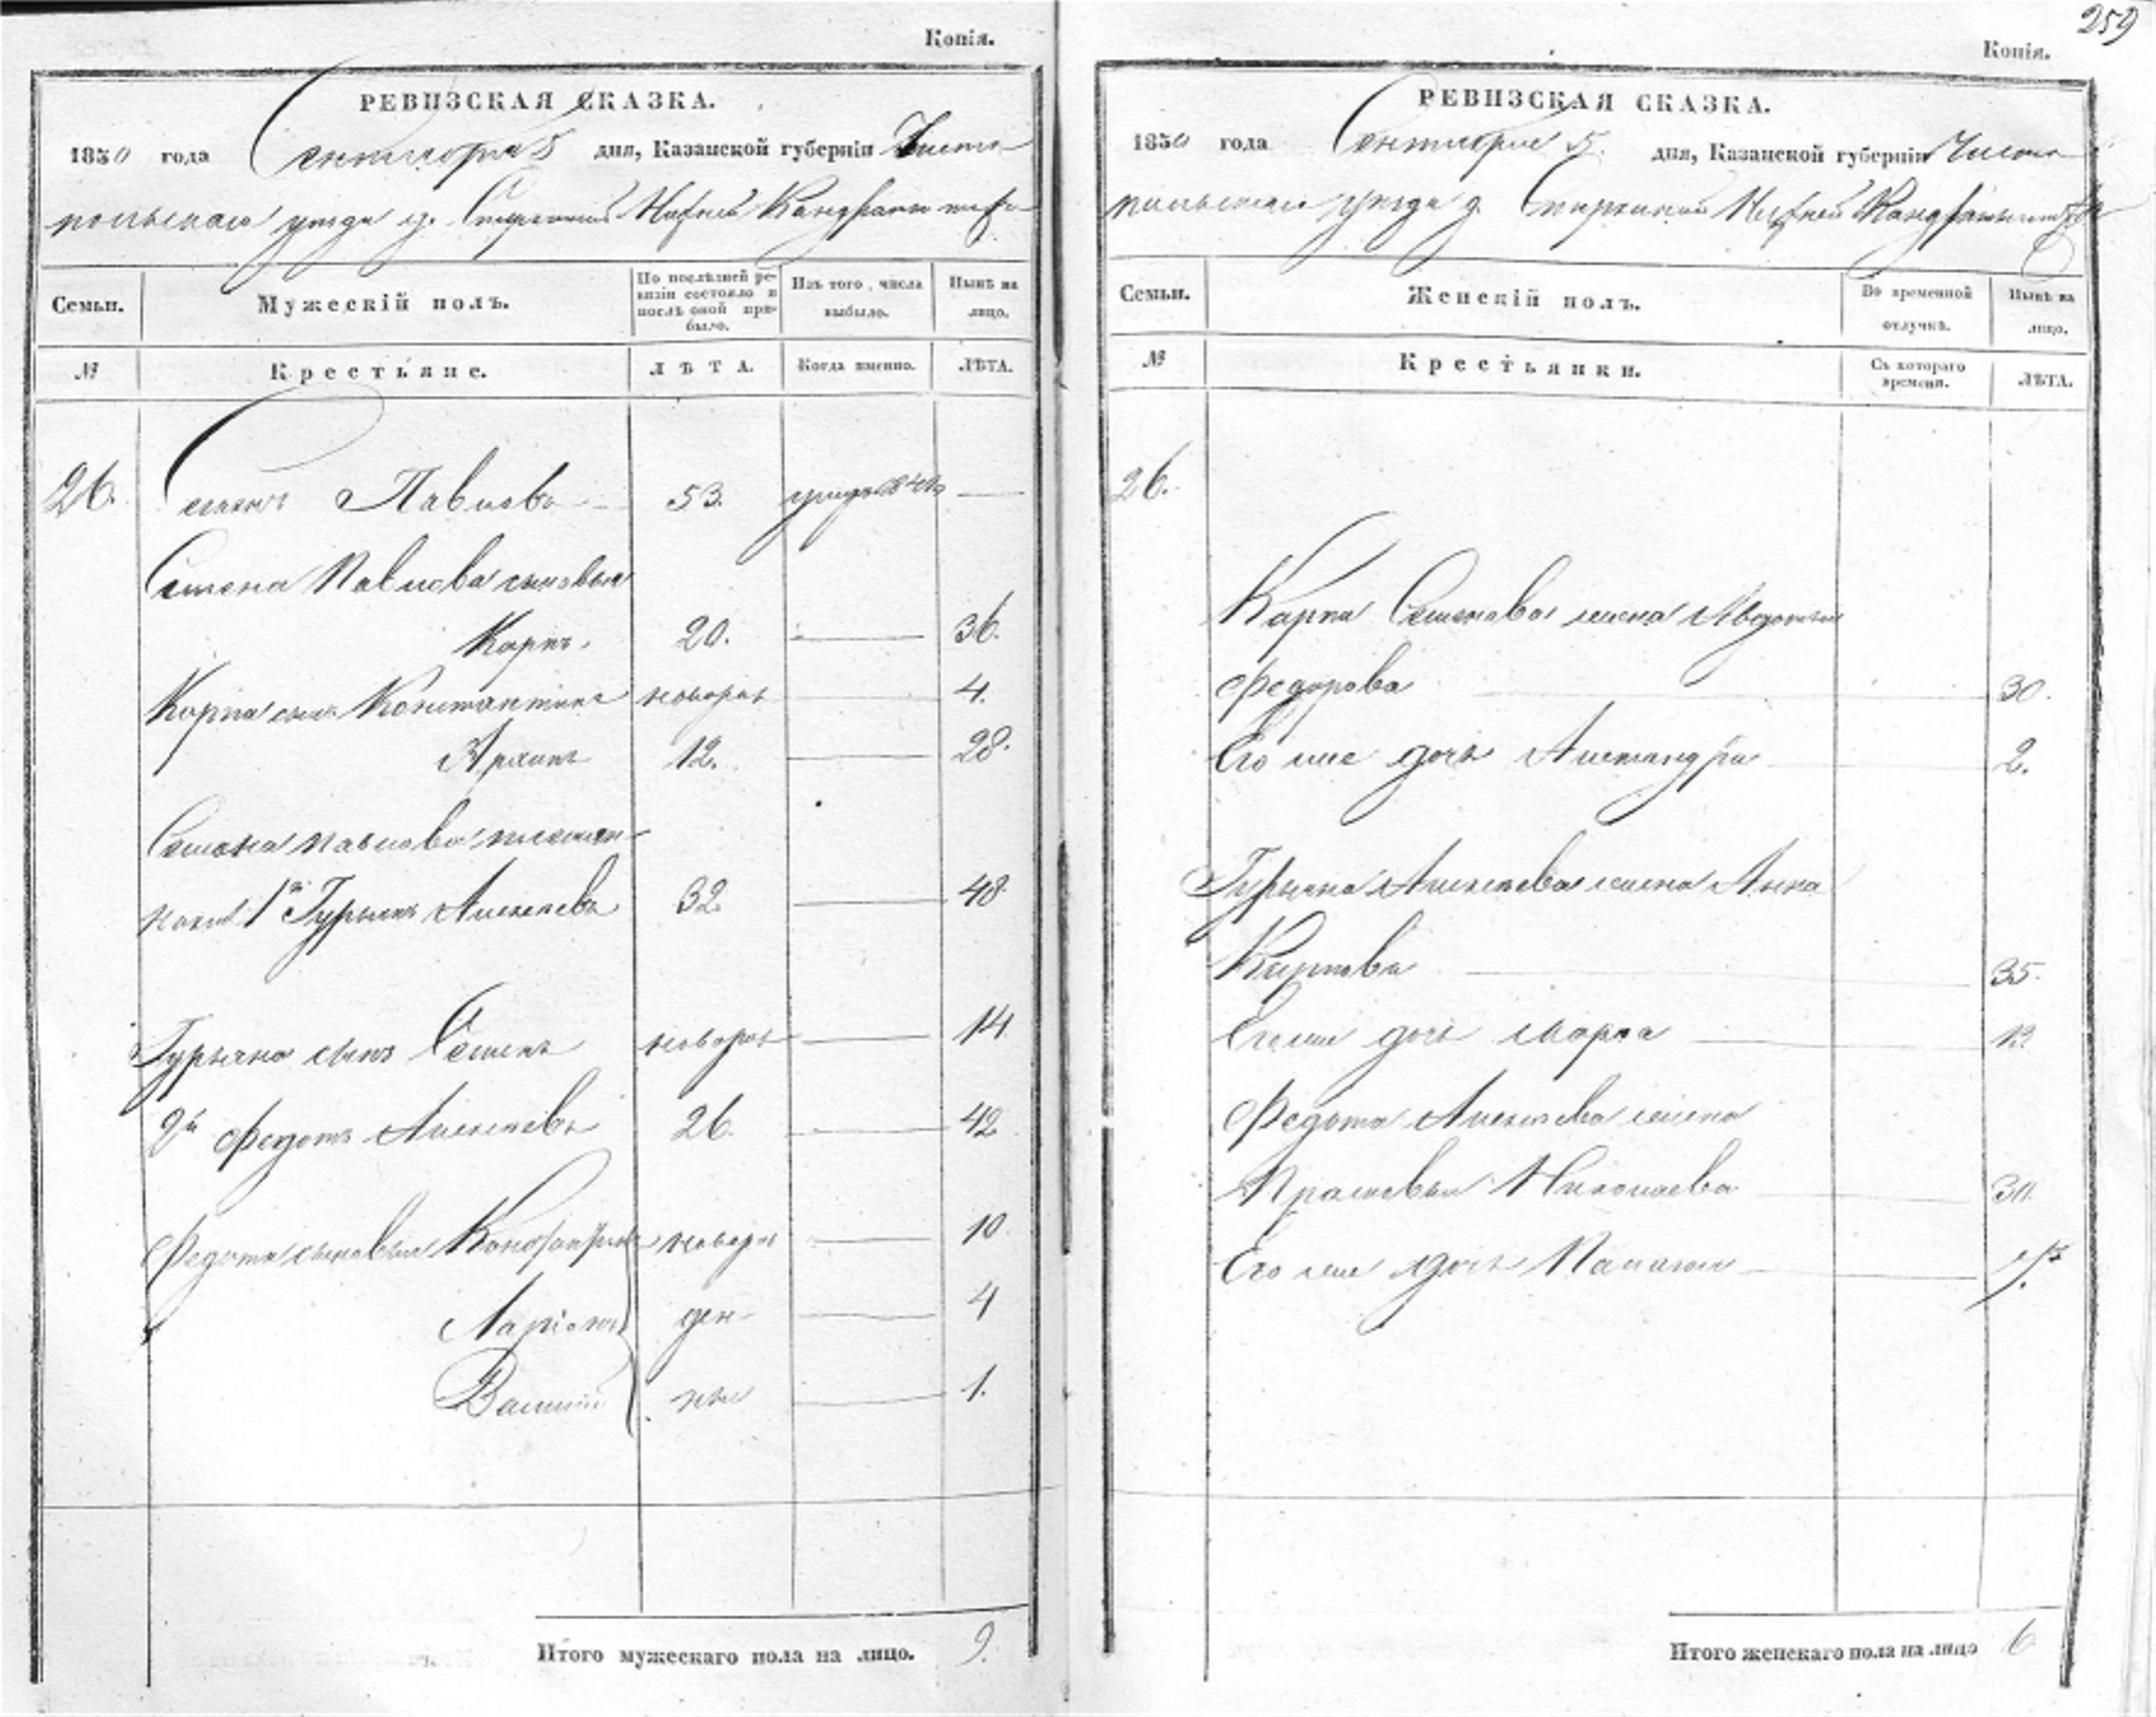 259
Копія.
РЕВИЗСКАЯ СКАЗКА.
1850 года Сентября 5 дня, Казанской губерніи Чисто
польскаго уезда д.
Семьи. Мужескій полъ. По послѣдней ревизіи состояло и послѣ оной прибыло. Изъ того числа выбыло. Нынѣ на лицо.
№ Крестьяне. ЛѢТА. Когда именно. ЛѢТА.
26. Семенъ Павловъ 53.
Семена Павлова сыновья
Карпъ. 20. 36.
Карпа сынъ Константинъ новорож 4.
Архипъ 12. 28.
Семена Павлова племян
1й Гурьянъ Алексеевъ 32 48
Гурьяна сынъ Семенъ новорож 14
2й Федотъ Алексеевъ 26. 42
Федота сыновья новорож 10
Ларіонъ ден 4
Василій ные 1.
Итого мужескаго пола на лицо. 9.
Копія.
РЕВИЗСКАЯ СКАЗКА.
1850 года Сентября 5. дня, Казанской губерніи Чисто
польскаго уезда д.
Семьи. Женскій полъ. Во временной отлучкѣ. Нынѣ на лицо.
№ Крестьянки. Съ котораго времени. ЛѢТА.
26.
Карпа Семенова жена Авдотья
Федорова 30.
Его же дочь Александра 2.
Гурьяна Алексеева жена Анна
Карпова 35.
Его же дочь Марфа 12.
Федота Алексеева жена
Прасковья Николаева
Его же дочь Палагея
Итого женскаго пола на лицо 6